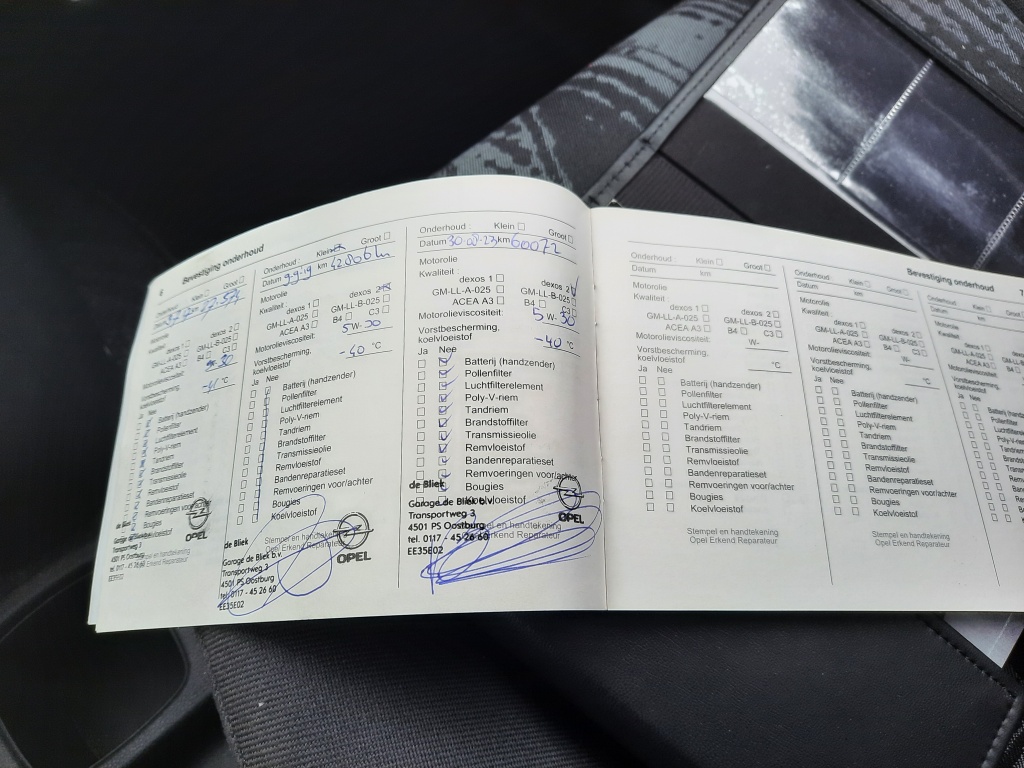 6 Bevestiging onderhoud
Onderhoud: Klein Groot
dexos 2
GM-LL-A-025 GM-LL-B-025
ACEA A3 B4 C3
Motorolieviscositeit:
Vorstbescherming,
koelvloeistof
°C
Ja Nee
Batterij (handzender)
Pollenfilter
Luchtfilterelement
Poly-V-riem
Tandriem
Brandstoffilter
Transmissieolie
Remvloeistof
Bandenreparatieset
Remvoeringen voor/achter
Bougies
Koelvloeistof
de Bliek
Garage de Bliek b.v.
Transportweg 3
4501 PS Oostburg
tel. 0117 - 45 26 60
EE35E02
OPEL
Onderhoud: Klein Groot
Datum 9-9-19 km 42806 km
Motorolie
Kwaliteit: dexos 1 dexos 2
GM-LL-A-025 GM-LL-B-025
ACEA A3 B4 C3
Motorolieviscositeit: 5 W- 30
Vorstbescherming,
koelvloeistof -40 °C
Ja Nee
Batterij (handzender)
Pollenfilter
Luchtfilterelement
Poly-V-riem
Tandriem
Brandstoffilter
Transmissieolie
Remvloeistof
Bandenreparatieset
Remvoeringen voor/achter
Bougies
Koelvloeistof
Stempel en handtekening
Opel Erkend Reparateur
de Bliek
Garage de Bliek b.v.
Transportweg 3
4501 PS Oostburg
tel. 0117 - 45 26 60
EE35E02
OPEL
Onderhoud: Klein Groot
Datum 30-08-23 km 60072
Motorolie
Kwaliteit: dexos 1 dexos 2
GM-LL-A-025 GM-LL-B-025
ACEA A3 B4 C3
Motorolieviscositeit: 5 W- 30
Vorstbescherming,
koelvloeistof -40 °C
Ja Nee
Batterij (handzender)
Pollenfilter
Luchtfilterelement
Poly-V-riem
Tandriem
Brandstoffilter
Transmissieolie
Remvloeistof
Bandenreparatieset
Remvoeringen voor/achter
Bougies
Koelvloeistof
de Bliek
Garage de Bliek b.v.
Transportweg 3
4501 PS Oostburg
tel. 0117 - 45 26 60
EE35E02
OPEL
Bevestiging onderhoud 7
Onderhoud: Klein Groot
Datum km
Motorolie
Kwaliteit: dexos 1 dexos 2
GM-LL-A-025 GM-LL-B-025
ACEA A3 B4 C3
Motorolieviscositeit: W-
Vorstbescherming,
koelvloeistof °C
Ja Nee
Batterij (handzender)
Pollenfilter
Luchtfilterelement
Poly-V-riem
Tandriem
Brandstoffilter
Transmissieolie
Remvloeistof
Bandenreparatieset
Remvoeringen voor/achter
Bougies
Koelvloeistof
Stempel en handtekening
Opel Erkend Reparateur
Onderhoud: Klein Groot
Datum km
Motorolie
Kwaliteit: dexos 1 dexos 2
GM-LL-A-025 GM-LL-B-025
ACEA A3 B4 C3
Motorolieviscositeit: W-
Vorstbescherming,
koelvloeistof °C
Ja Nee
Batterij (handzender)
Pollenfilter
Luchtfilterelement
Poly-V-riem
Tandriem
Brandstoffilter
Transmissieolie
Remvloeistof
Bandenreparatieset
Remvoeringen voor/achter
Bougies
Koelvloeistof
Stempel en handtekening
Opel Erkend Reparateur
Onderhoud: Klein
Datum km
Motorolie
Kwaliteit:
dexos 1
GM-LL-A-025
ACEA A3
Motorolieviscositeit:
Vorstbescherming,
koelvloeistof
Ja Nee